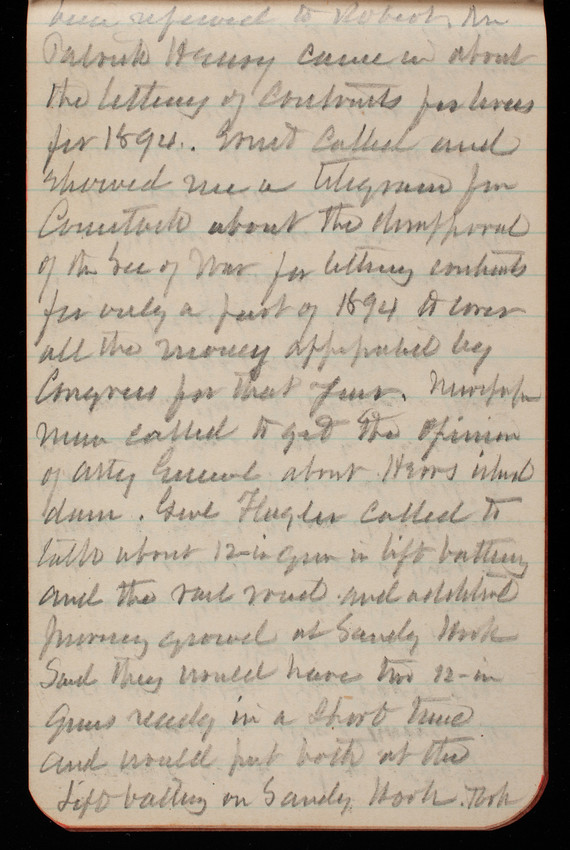 been referred to Robert. Mr
Patrick Henry came in about
the letting of Contracts for levees
for 1894. Ernst called and
showed me a telegram from
Comstock about the disapproval
of the Sec of War for letting contracts
for only a part of 1894 to cover
all the money appropriated by
Congress for that year. Newspaper
men called to get the opinion
of Atty General about Havs island
dam. Genl Flagler called to
talk about 12-in gun in lift battery
and the rail road and additional
proving ground at Sandy Hook
Said they would have two 12-in
guns ready in a short time
and would put both at the
Lift battery on Sandy Hook. Took